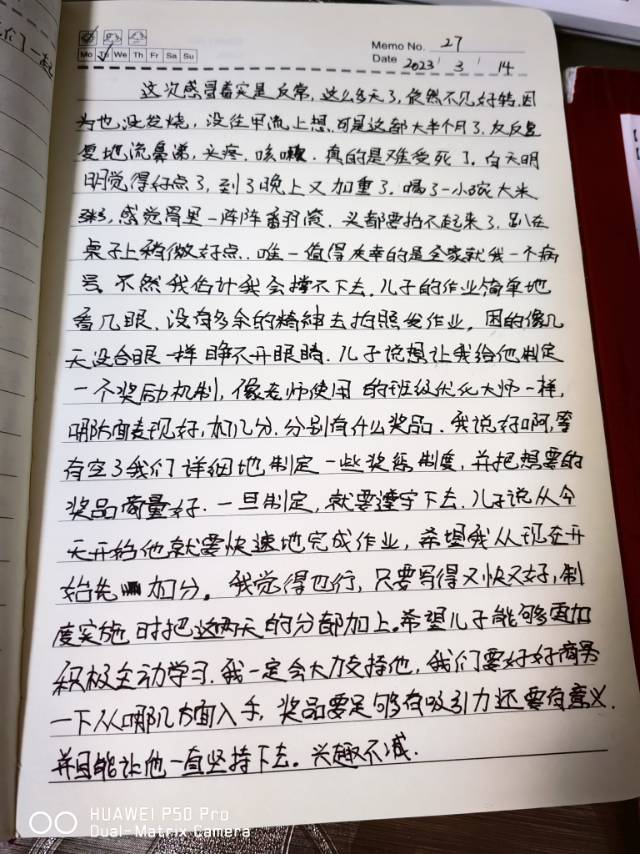 Memo No. 27
Mo Tu We Th Fr Sa Su
Date 2023 / 3 / 14
这次感冒着实是反常,这么多天了,依然不见好转,因
为也没发烧,没往甲流上想,可是这都大半个月了,反反复
复地流鼻涕,头疼,咳嗽,真的是难受死了,白天明
明觉得好点了,到了晚上又加重了,喝了一小碗大米
粥,感觉胃里一阵阵翻滚,头都要抬不起来了,趴在
桌子上稍微好点,唯一值得庆幸的是全家就我一个病
号,不然我估计我会撑不下去,儿子的作业简单地
看几眼,没有多余的精神去拍照发作业,困的像几
天没合眼一样睁不开眼睛,儿子说想让我给他制定
一个奖励机制,像老师使用的班级优化大师一样,
哪方面表现好,加几分,分别有什么奖品,我说好啊,等
有空了我们详细地制定一些奖惩制度,并把想要的
奖品商量好,一旦制定,就要遵守下去,儿子说从今
天开始他就要快速地完成作业,希望我从现在开
始先加分。我觉得也行,只要写得又快又好,制
度实施时把这两天的分都加上。希望儿子能够更加
积极主动学习,我一定会大力支持他,我们要好好商务
一下从哪几方面入手,奖品要足够有吸引力还要有意义,
并且能让他一直坚持下去。兴趣不减.
HUAWEI P50 Pro
Dual-Matrix Camera